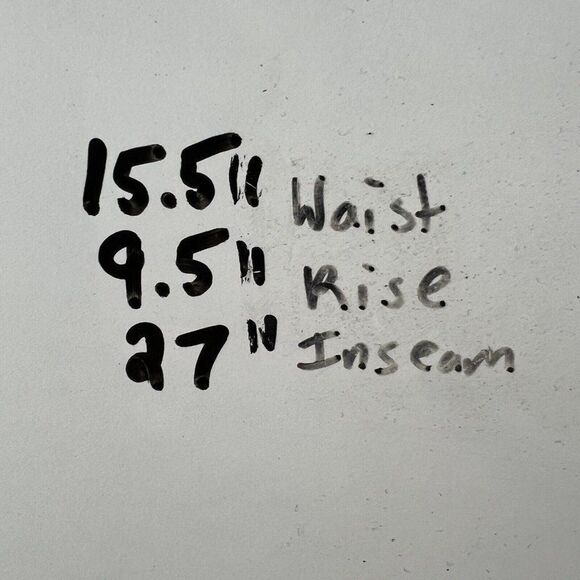 15.5" Waist
9.5" Rise
27" Inseam